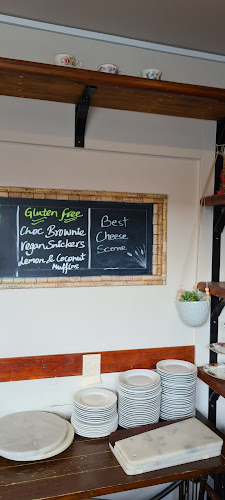 Gluten free
Choc Brownie
vegan Snickers
Lemon & Coconut
Muffins
Best
Cheese
Scone